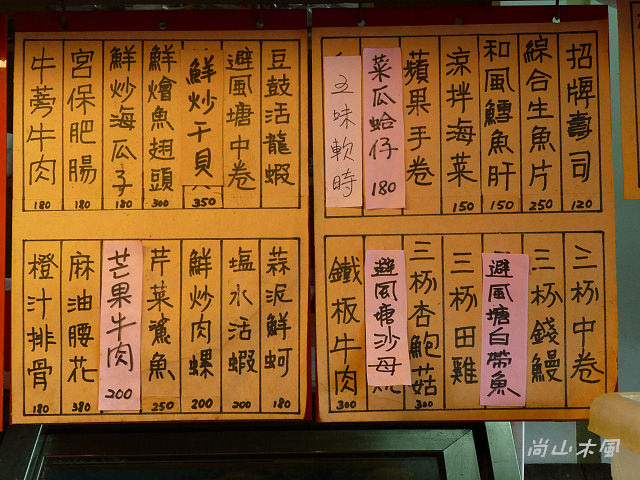 招牌壽司 120
綜合生魚片 250
和風鱈魚肝 150
涼拌海菜 150
蘋果手卷
菜瓜蛤仔 180
五味軟時
三杯中卷
三杯錢鰻
避風塘白帶魚
三杯田雞
三杯杏鮑菇 300
避風塘沙母
鐵板牛肉 300
豆鼓活龍蝦
避風塘中卷
鮮炒干貝 350
鮮燴魚翅頭 300
鮮炒海瓜子 180
宮保肥腸 180
牛蒡牛肉 180
蒜泥鮮蚵 180
塩水活蝦 200
鮮炒肉螺 200
芹菜鯊魚 250
芒果牛肉 200
麻油腰花 380
橙汁排骨 180
尚山木風